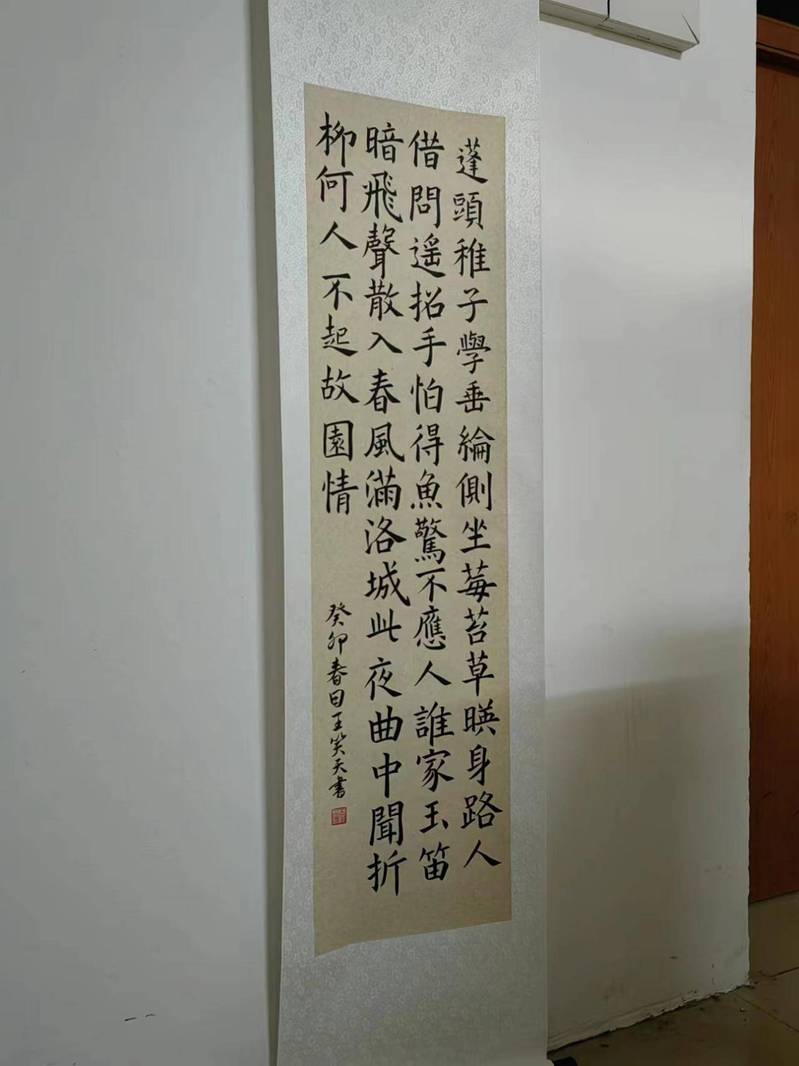 蓬頭稚子學垂綸側坐莓苔草暎身路人
借問遥招手怕得魚驚不應人誰家玉笛
暗飛聲散入春風滿洛城此夜曲中聞折
柳何人不起故園情
癸卯春日王笑天書